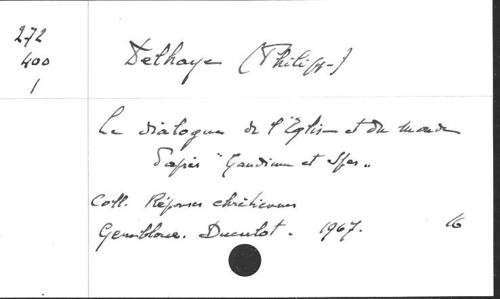 272
400
1
Delhaye (Philipp-)
Le dialogue de l'Eglise et du monde
d'après "Gaudium et Spes"
Coll. Réponses chrétiennes
Gembloux. Duculot. 1967. 16